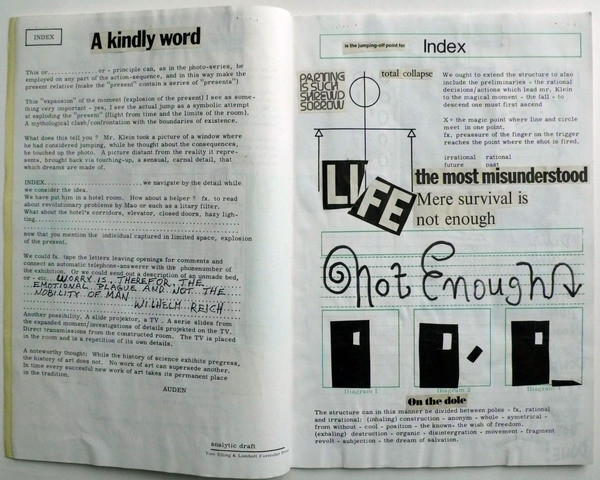 INDEX
A kindly word
This or................or - principle can, as in the photo-series, be
employed on any part of the action-sequence, and in this way make the
present relative (make the "present" contain a series of "presents")
This "expansion" of the moment (explosion of the present) I see as some-
thing very important - yes, I see the actual jump as a symbolic attempt
at exploding the "present" (flight from time and the limits of the room).
A mythological clash/confrontation with the boundaries of existence.
What does this tell you ? Mr. Klein took a picture of a window where
he had considered jumping, while he thought about the consequences,
he touched up the photo. A picture distant from the reality it repre-
sents, brought back via touching-up, a sensual, carnal detail, that
which dreams are made of.
INDEX................................, we navigate by the detail while
we consider the idea.
We have put him in a hotel room. How about a helper ? fx. to read
about revolutionary problems by Mao or such as a litary filter.
What about the hotel's corridors, elevator, closed doors, hazy ligh-
ting...
now that you mention the individual captured in limited space, explosion
of the present.
We could fx. tape the letters leaving openings for comments and
connect an automatic telephone-answerer with the phonenumber of
the exhibition. Or we could send out a description of an unmade bed,
or - etc.. WORRY IS, THEREFOR, THE
EMOTIONAL PLAGUE AND NOT THE
NOBILITY OF MAN
WILHELM REICH
Another possibility. A slide projektor, a TV . A serie slides from
the expanded moment/investigations of details projeked on the TV.
Direct transmissions from the constructed room. The TV is placed
in the room and is a repetition of its own details.
A noteworthy thought: While the history of science exhibits progress,
the history of art does not. No work of art can supersede another.
In time every succesful new work of art takes its permanent place
in the tradition.
AUDEN
analytic draft
is the jumping-off point for
Index
PARTING
IS SUCH
SHREWD
SORROW
total collapse
We ought to extend the structure to also
include the preliminaries - the rational
decisions/actions which lead mr. Klein
to the magical moment - the fall - to
descend one must first ascend
X = the magic point where line and circle
meet in one point.
fx. preasure of the finger on the trigger
reaches the point where the shot is fired.
irrational rational
future past
LIFE
the most misunderstood
Mere survival is
not enough
Not Enough
Diagram 1
Diagram 2
Diagram
On the dole
The structure can in this manner be divided between poles - fx. rational
and irrational: (inhaling) construction - anonym - whole - symetrical -
from without - cool - position - the known- the wish of freedom.
(exhaling) destruction - organic - disintergration - movement - fragment
revolt - subjection - the dream of salvation.